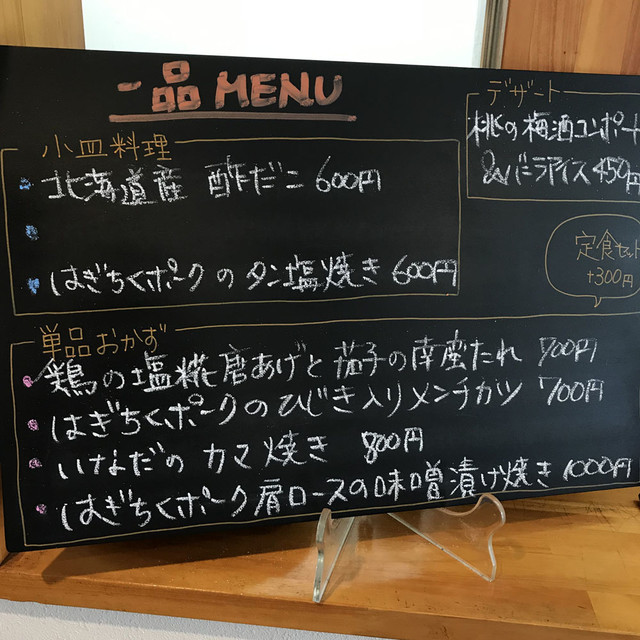 一品MENU
小皿料理
・北海道産 酢だこ 600円
・
・はぎちくポークのタン塩焼き 600円
デザート
桃の梅酒コンポート
&バニラアイス 450円
定食セット
+300円
単品おかず
・鶏の塩糀唐あげと茄子の南蛮たれ 700円
・はぎちくポークのひじき入りメンチカツ 700円
・いなだのカマ焼き 800円
・はぎちくポーク肩ロースの味噌漬け焼き 1000円